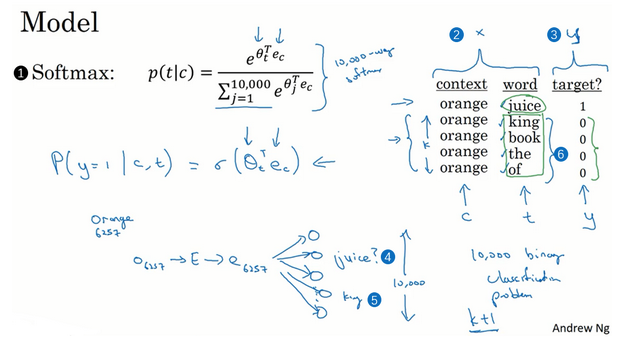 Model
❶ Softmax: p(t|c) = e^{θ_t^T e_c} / Σ_{j=1}^{10,000} e^{θ_j^T e_c}
10,000-way
softmax
P(y=1 | c,t) = σ(θ_t^T e_c) ←
Orange
6257
o_6257 → E → e_6257
juice? ❹
king ❺
10,000
❷ x ❸ y
context word target?
orange juice 1
orange king 0
orange book 0
orange the 0
orange of 0
k
❻
c t y
10,000 binary
classification
problem
k+1
Andrew Ng